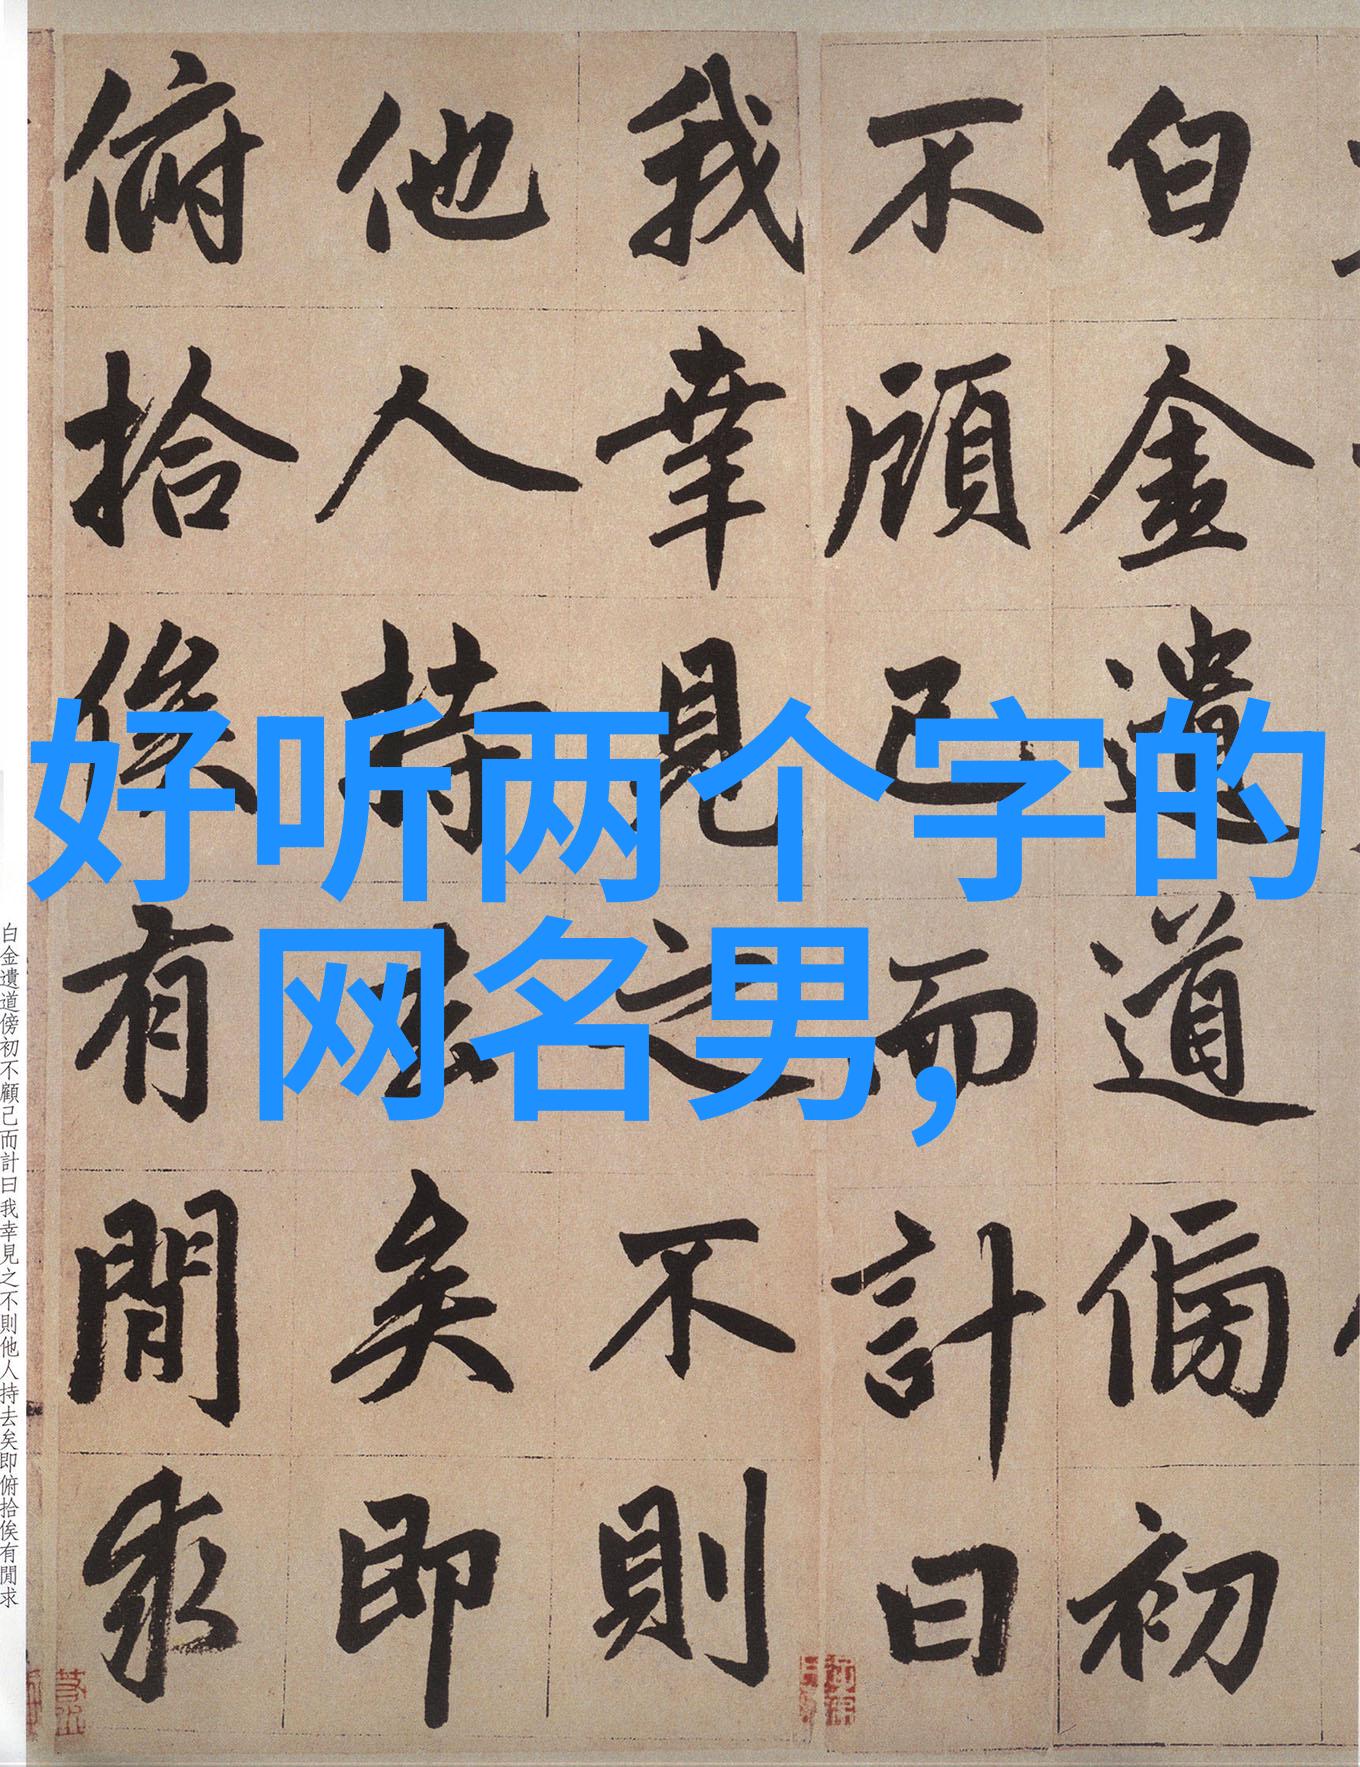 好听两个字的
网名男,
白金遺道傍初
不顧己而計曰
我幸見之不則
他人持去矣即
俯拾俟有閒求
白金遺道傍初不顧己而計曰我幸見之不則他人持去矣即俯拾俟有閒求